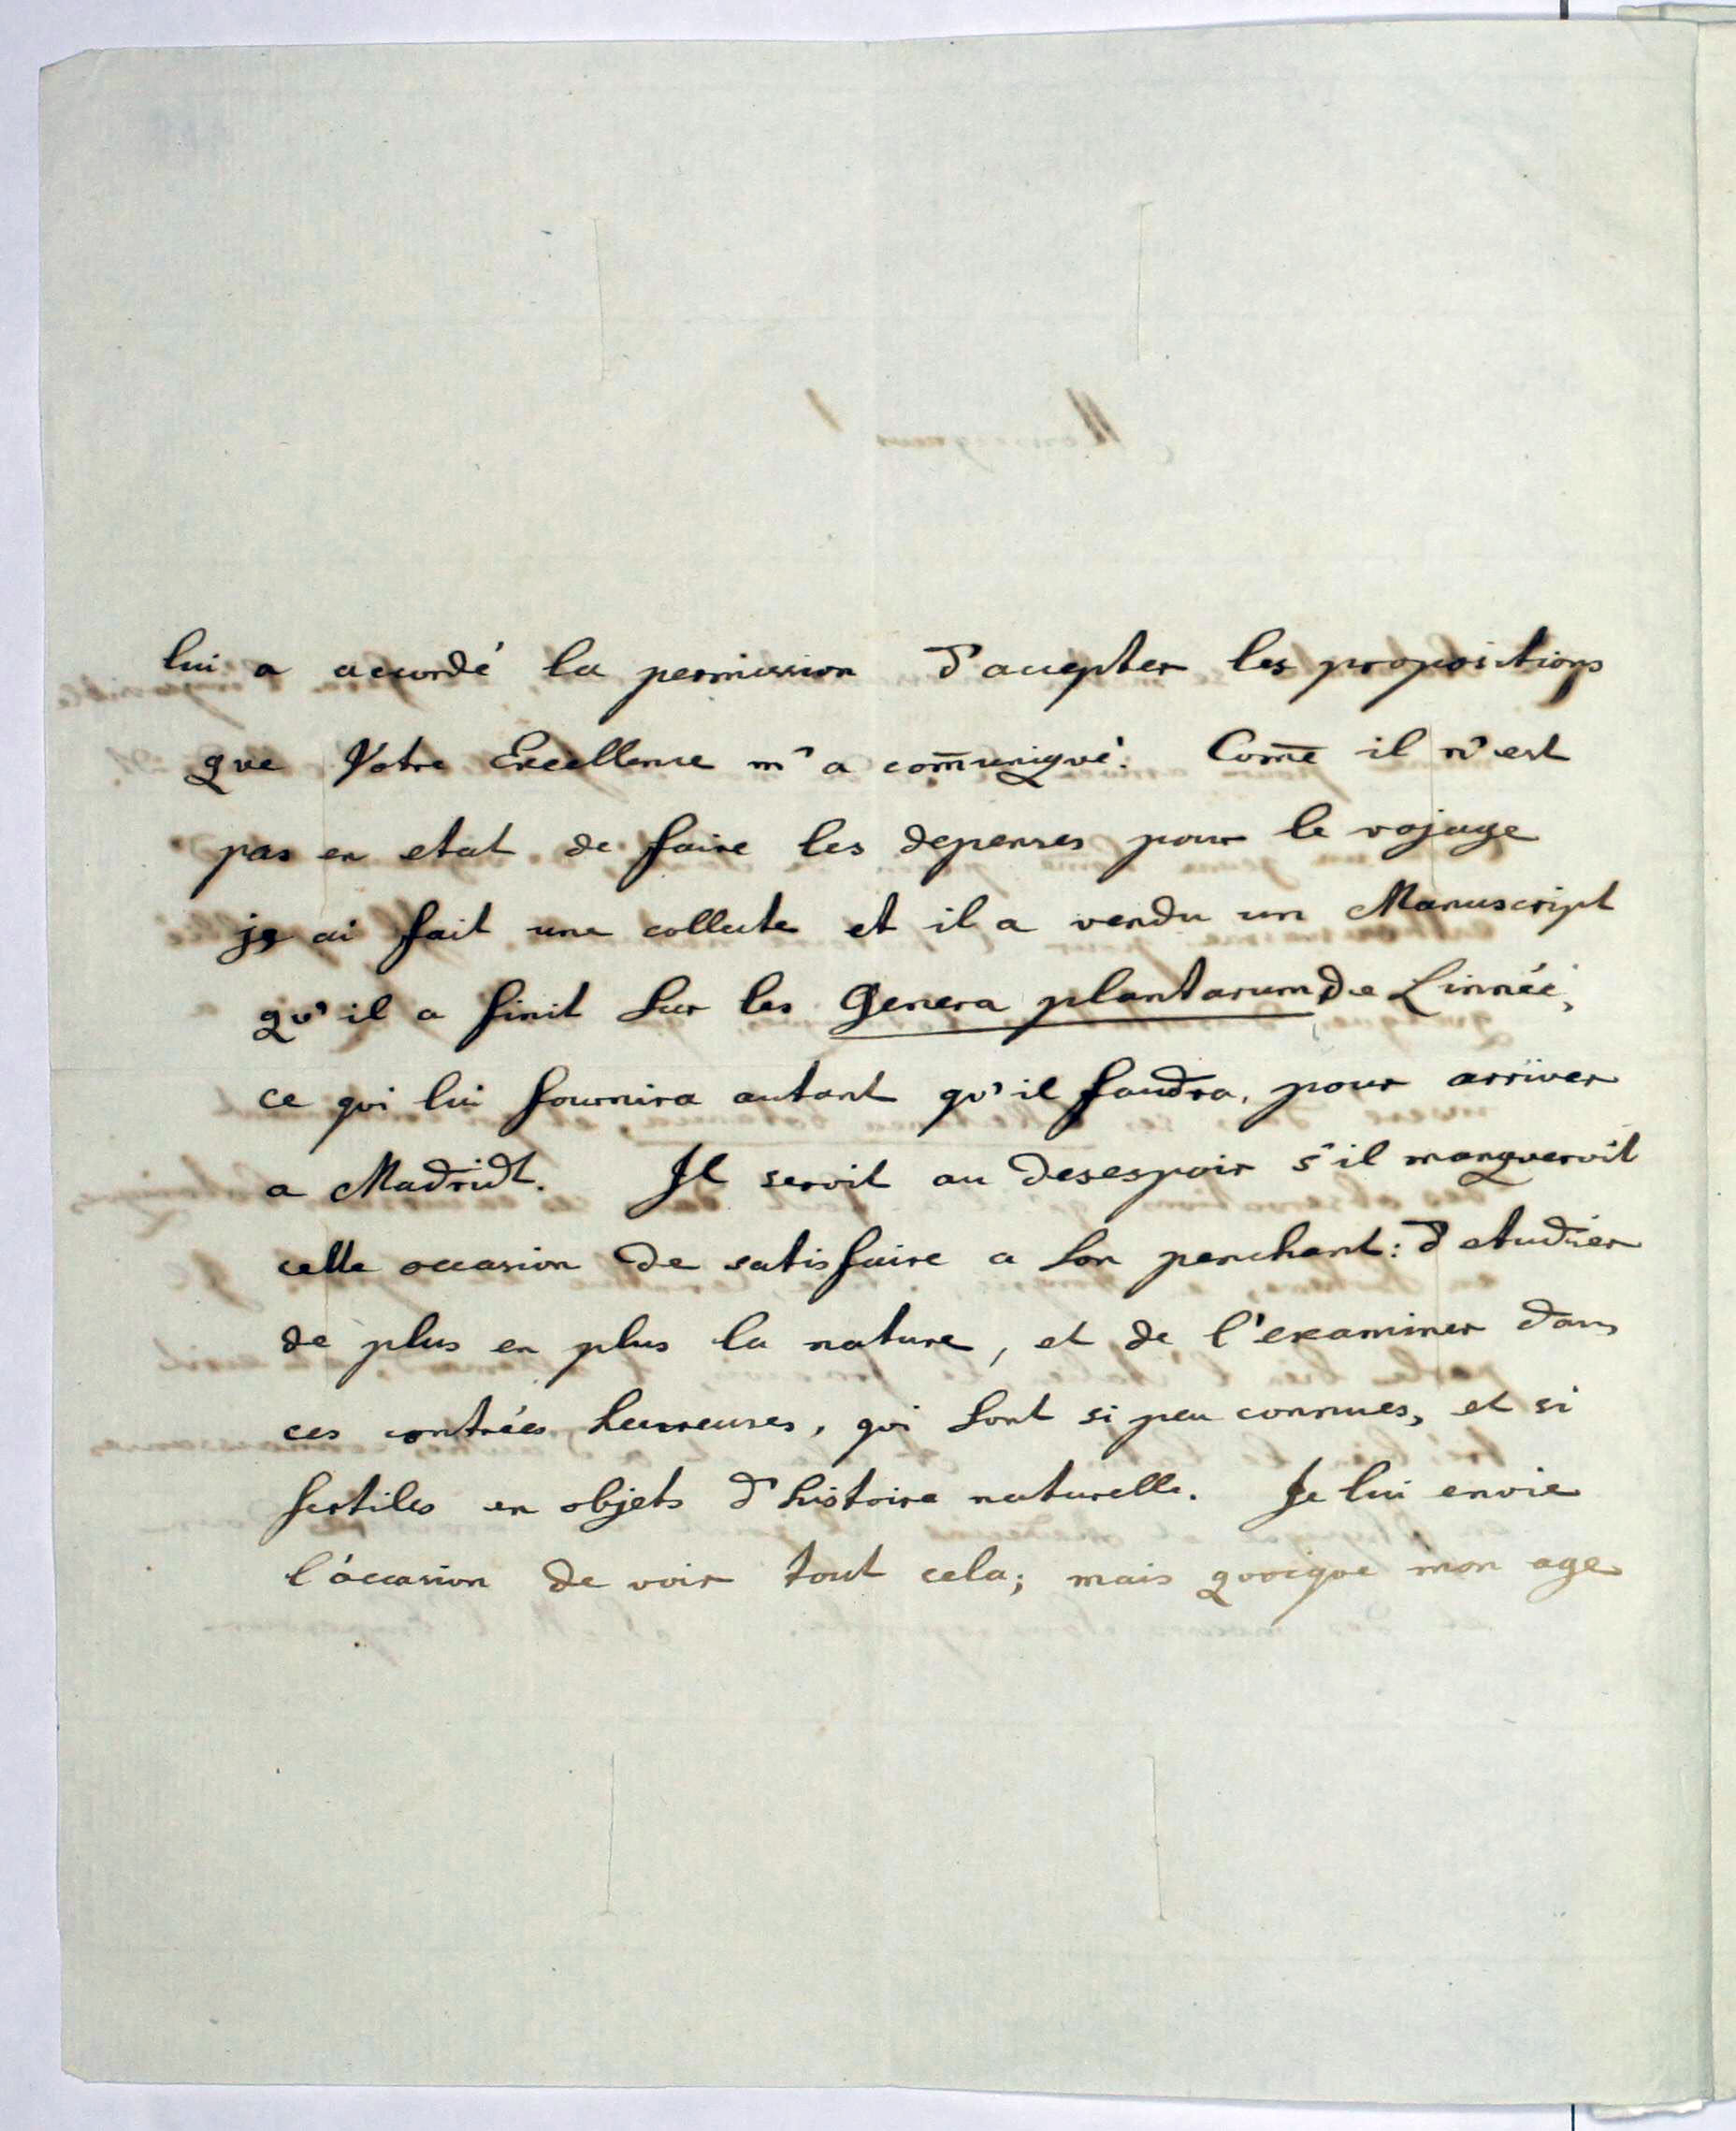 lui a accordé la permission d'accepter les propositions
que Votre Excellence m'a com̅uniqué. Com̅e il n'est
pas en etat de faire les depenses pour le vojage
je ai fait une collecte et il a vendu un Manuscript
qu'il a finit sur les Genera plantarum de Linnée,
ce qui lui fournira autant qu'il faudra, pour arriver
a Madridt. Il seroit au desespoir s'il manqueroit
cette occasion de satisfaire a son penchant: d'etudier
de plus en plus la nature, et de l'examiner dans
ces contrées heureuses, qui sont si peu connues, et si
fertiles en objets d'histoire naturelle. Je lui envie
l'óccasion de voir tout cela; mais quoique mon age